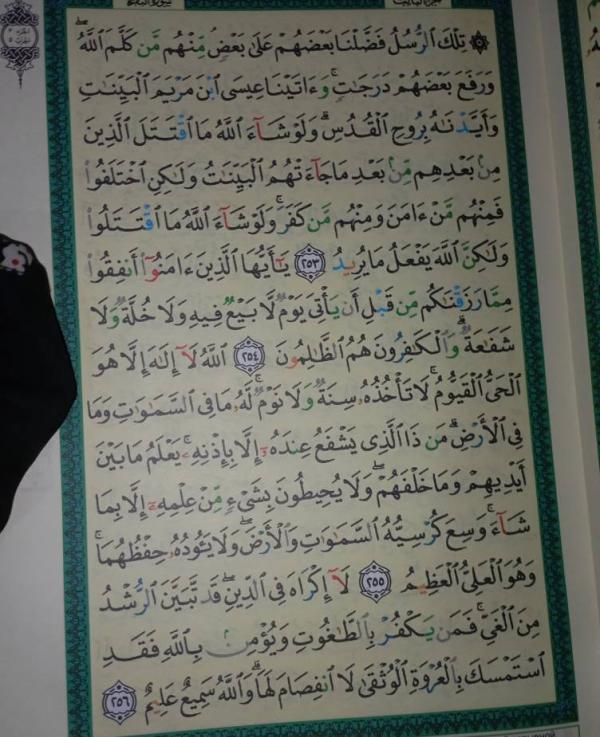 سورة البقرة
الجزء الثالث
تِلْكَ ٱلرُّسُلُ فَضَّلْنَا بَعْضَهُمْ عَلَىٰ بَعْضٍ مِّنْهُم مَّن كَلَّمَ ٱللَّهُ
وَرَفَعَ بَعْضَهُمْ دَرَجَٰتٍ وَءَاتَيْنَا عِيسَى ٱبْنَ مَرْيَمَ ٱلْبَيِّنَٰتِ
وَأَيَّدْنَٰهُ بِرُوحِ ٱلْقُدُسِ وَلَوْ شَآءَ ٱللَّهُ مَا ٱقْتَتَلَ ٱلَّذِينَ
مِنۢ بَعْدِهِم مِّنۢ بَعْدِ مَا جَآءَتْهُمُ ٱلْبَيِّنَٰتُ وَلَٰكِنِ ٱخْتَلَفُوا۟
فَمِنْهُم مَّنْ ءَامَنَ وَمِنْهُم مَّن كَفَرَ وَلَوْ شَآءَ ٱللَّهُ مَا ٱقْتَتَلُوا۟
وَلَٰكِنَّ ٱللَّهَ يَفْعَلُ مَا يُرِيدُ ٢٥٣ يَٰٓأَيُّهَا ٱلَّذِينَ ءَامَنُوٓا۟ أَنفِقُوا۟
مِمَّا رَزَقْنَٰكُم مِّن قَبْلِ أَن يَأْتِىَ يَوْمٌ لَّا بَيْعٌ فِيهِ وَلَا خُلَّةٌ وَلَا
شَفَٰعَةٌ وَٱلْكَٰفِرُونَ هُمُ ٱلظَّٰلِمُونَ ٢٥٤ ٱللَّهُ لَآ إِلَٰهَ إِلَّا هُوَ
ٱلْحَىُّ ٱلْقَيُّومُ لَا تَأْخُذُهُۥ سِنَةٌ وَلَا نَوْمٌ لَّهُۥ مَا فِى ٱلسَّمَٰوَٰتِ وَمَا
فِى ٱلْأَرْضِ مَن ذَا ٱلَّذِى يَشْفَعُ عِندَهُۥٓ إِلَّا بِإِذْنِهِۦ يَعْلَمُ مَا بَيْنَ
أَيْدِيهِمْ وَمَا خَلْفَهُمْ وَلَا يُحِيطُونَ بِشَىْءٍ مِّنْ عِلْمِهِۦٓ إِلَّا بِمَا
شَآءَ وَسِعَ كُرْسِيُّهُ ٱلسَّمَٰوَٰتِ وَٱلْأَرْضَ وَلَا يَـُٔودُهُۥ حِفْظُهُمَا
وَهُوَ ٱلْعَلِىُّ ٱلْعَظِيمُ ٢٥٥ لَآ إِكْرَاهَ فِى ٱلدِّينِ قَد تَّبَيَّنَ ٱلرُّشْدُ
مِنَ ٱلْغَىِّ فَمَن يَكْفُرْ بِٱلطَّٰغُوتِ وَيُؤْمِنۢ بِٱللَّهِ فَقَدِ
ٱسْتَمْسَكَ بِٱلْعُرْوَةِ ٱلْوُثْقَىٰ لَا ٱنفِصَامَ لَهَا وَٱللَّهُ سَمِيعٌ عَلِيمٌ ٢٥٦